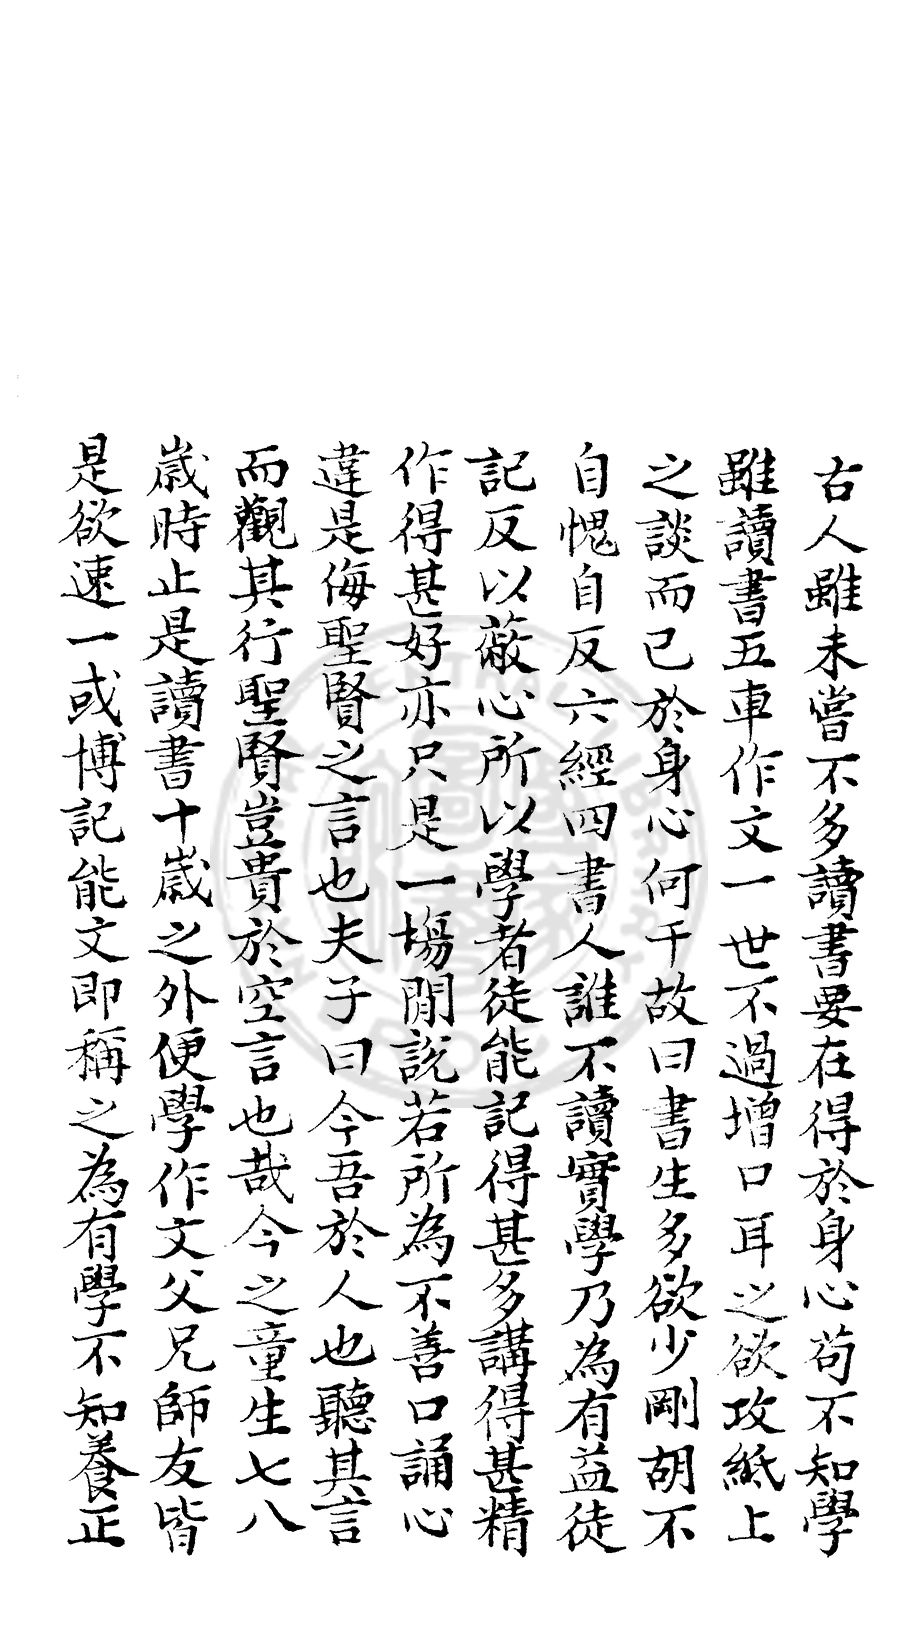 古人雖未嘗不多讀書要在得於身心苟不知學
雖讀書五車作文一世不過增口耳之欲攻紙上
之談而已於身心何干故曰書生多欲少剛胡不
自愧自反六經四書人誰不讀實學乃為有益徒
記反以蔽心所以學者徒能記得甚多講得甚精
作得甚好亦只是一場閒說若所為不善口誦心
違是侮聖賢之言也夫子曰今吾於人也聽其言
而觀其行聖賢豈貴於空言也哉今之童生七八
歲時止是讀書十歲之外便學作文父兄師友皆
是欲速一或博記能文即稱之為有學不知養正